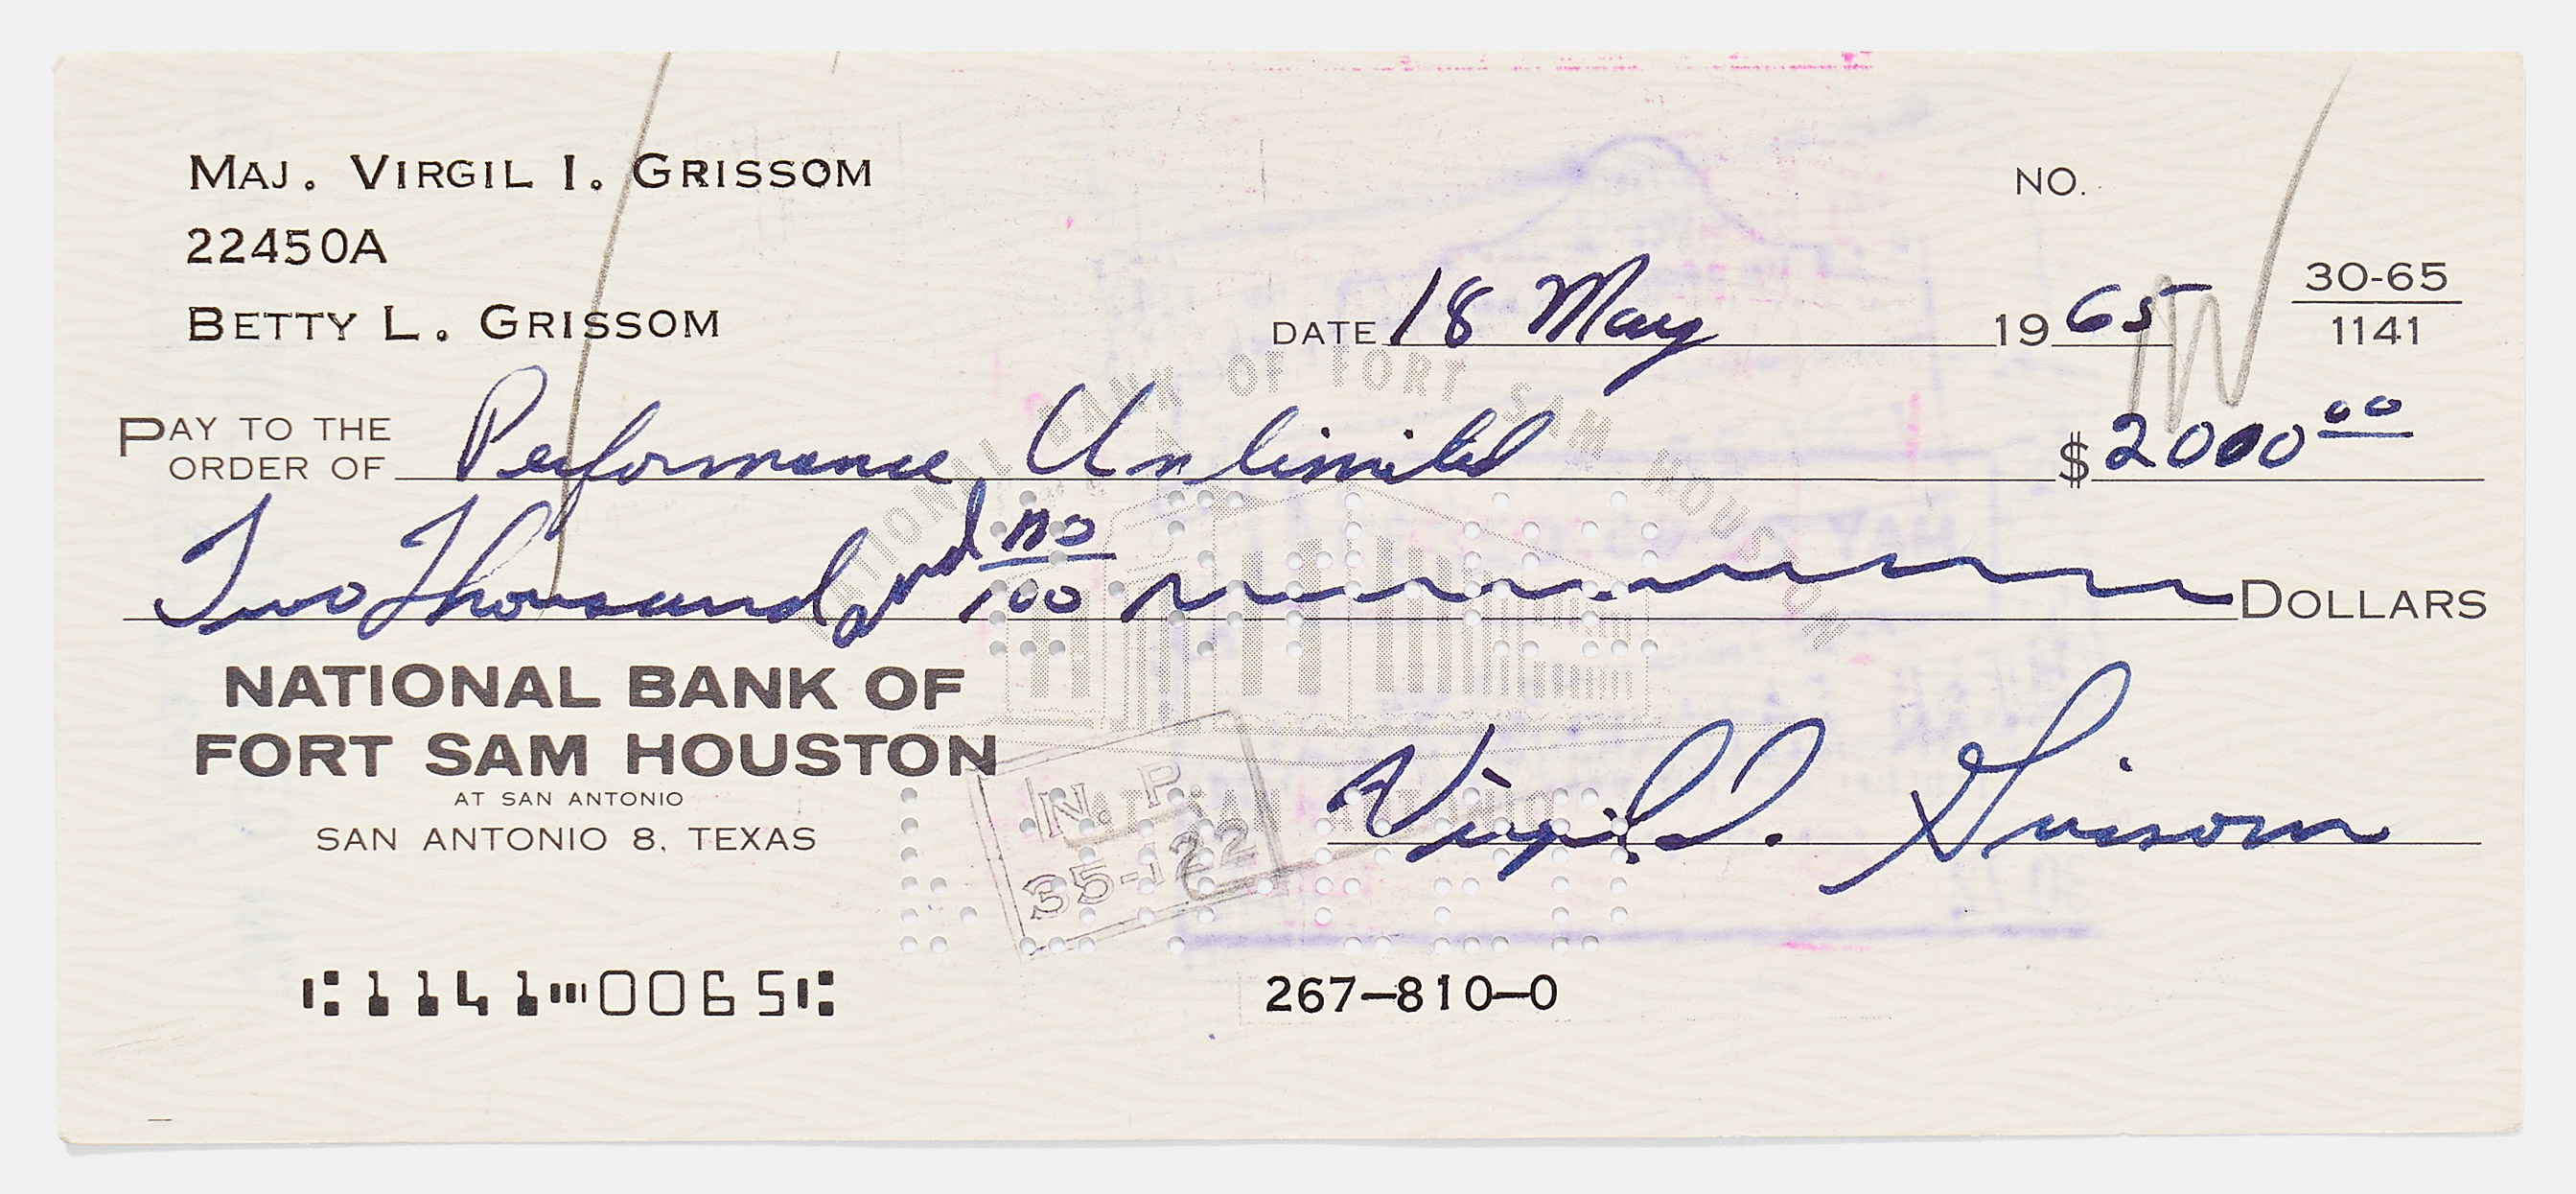 MAJ. VIRGIL I. GRISSOM
NO.
22450A
30-65
BETTY L. GRISSOM
DATE 18 May 1965
1141
PAY TO THE
ORDER OF Performance Unlimited $2000 00
Two Thousand and no/100 DOLLARS
NATIONAL BANK OF FORT SAM HOUSTON
NATIONAL BANK OF
FORT SAM HOUSTON
AT SAN ANTONIO
SAN ANTONIO 8, TEXAS
N. P.
35-122
Virgil I. Grissom
1141 0065
267-810-0